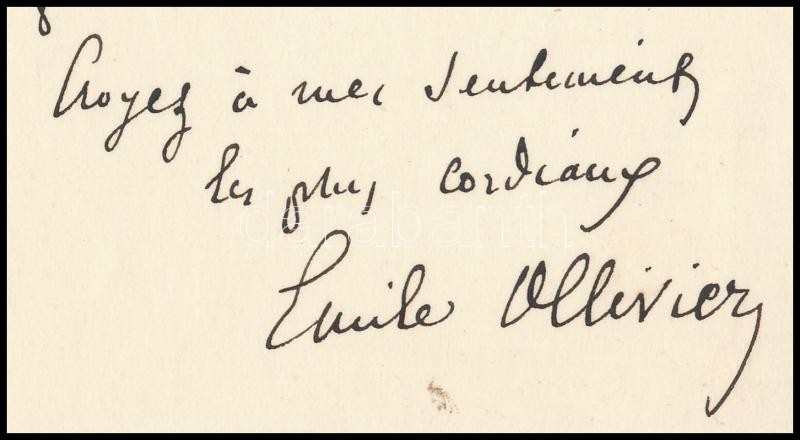 Croyez à mes sentiments
les plus cordiaux
darabanth
Emile Ollivier